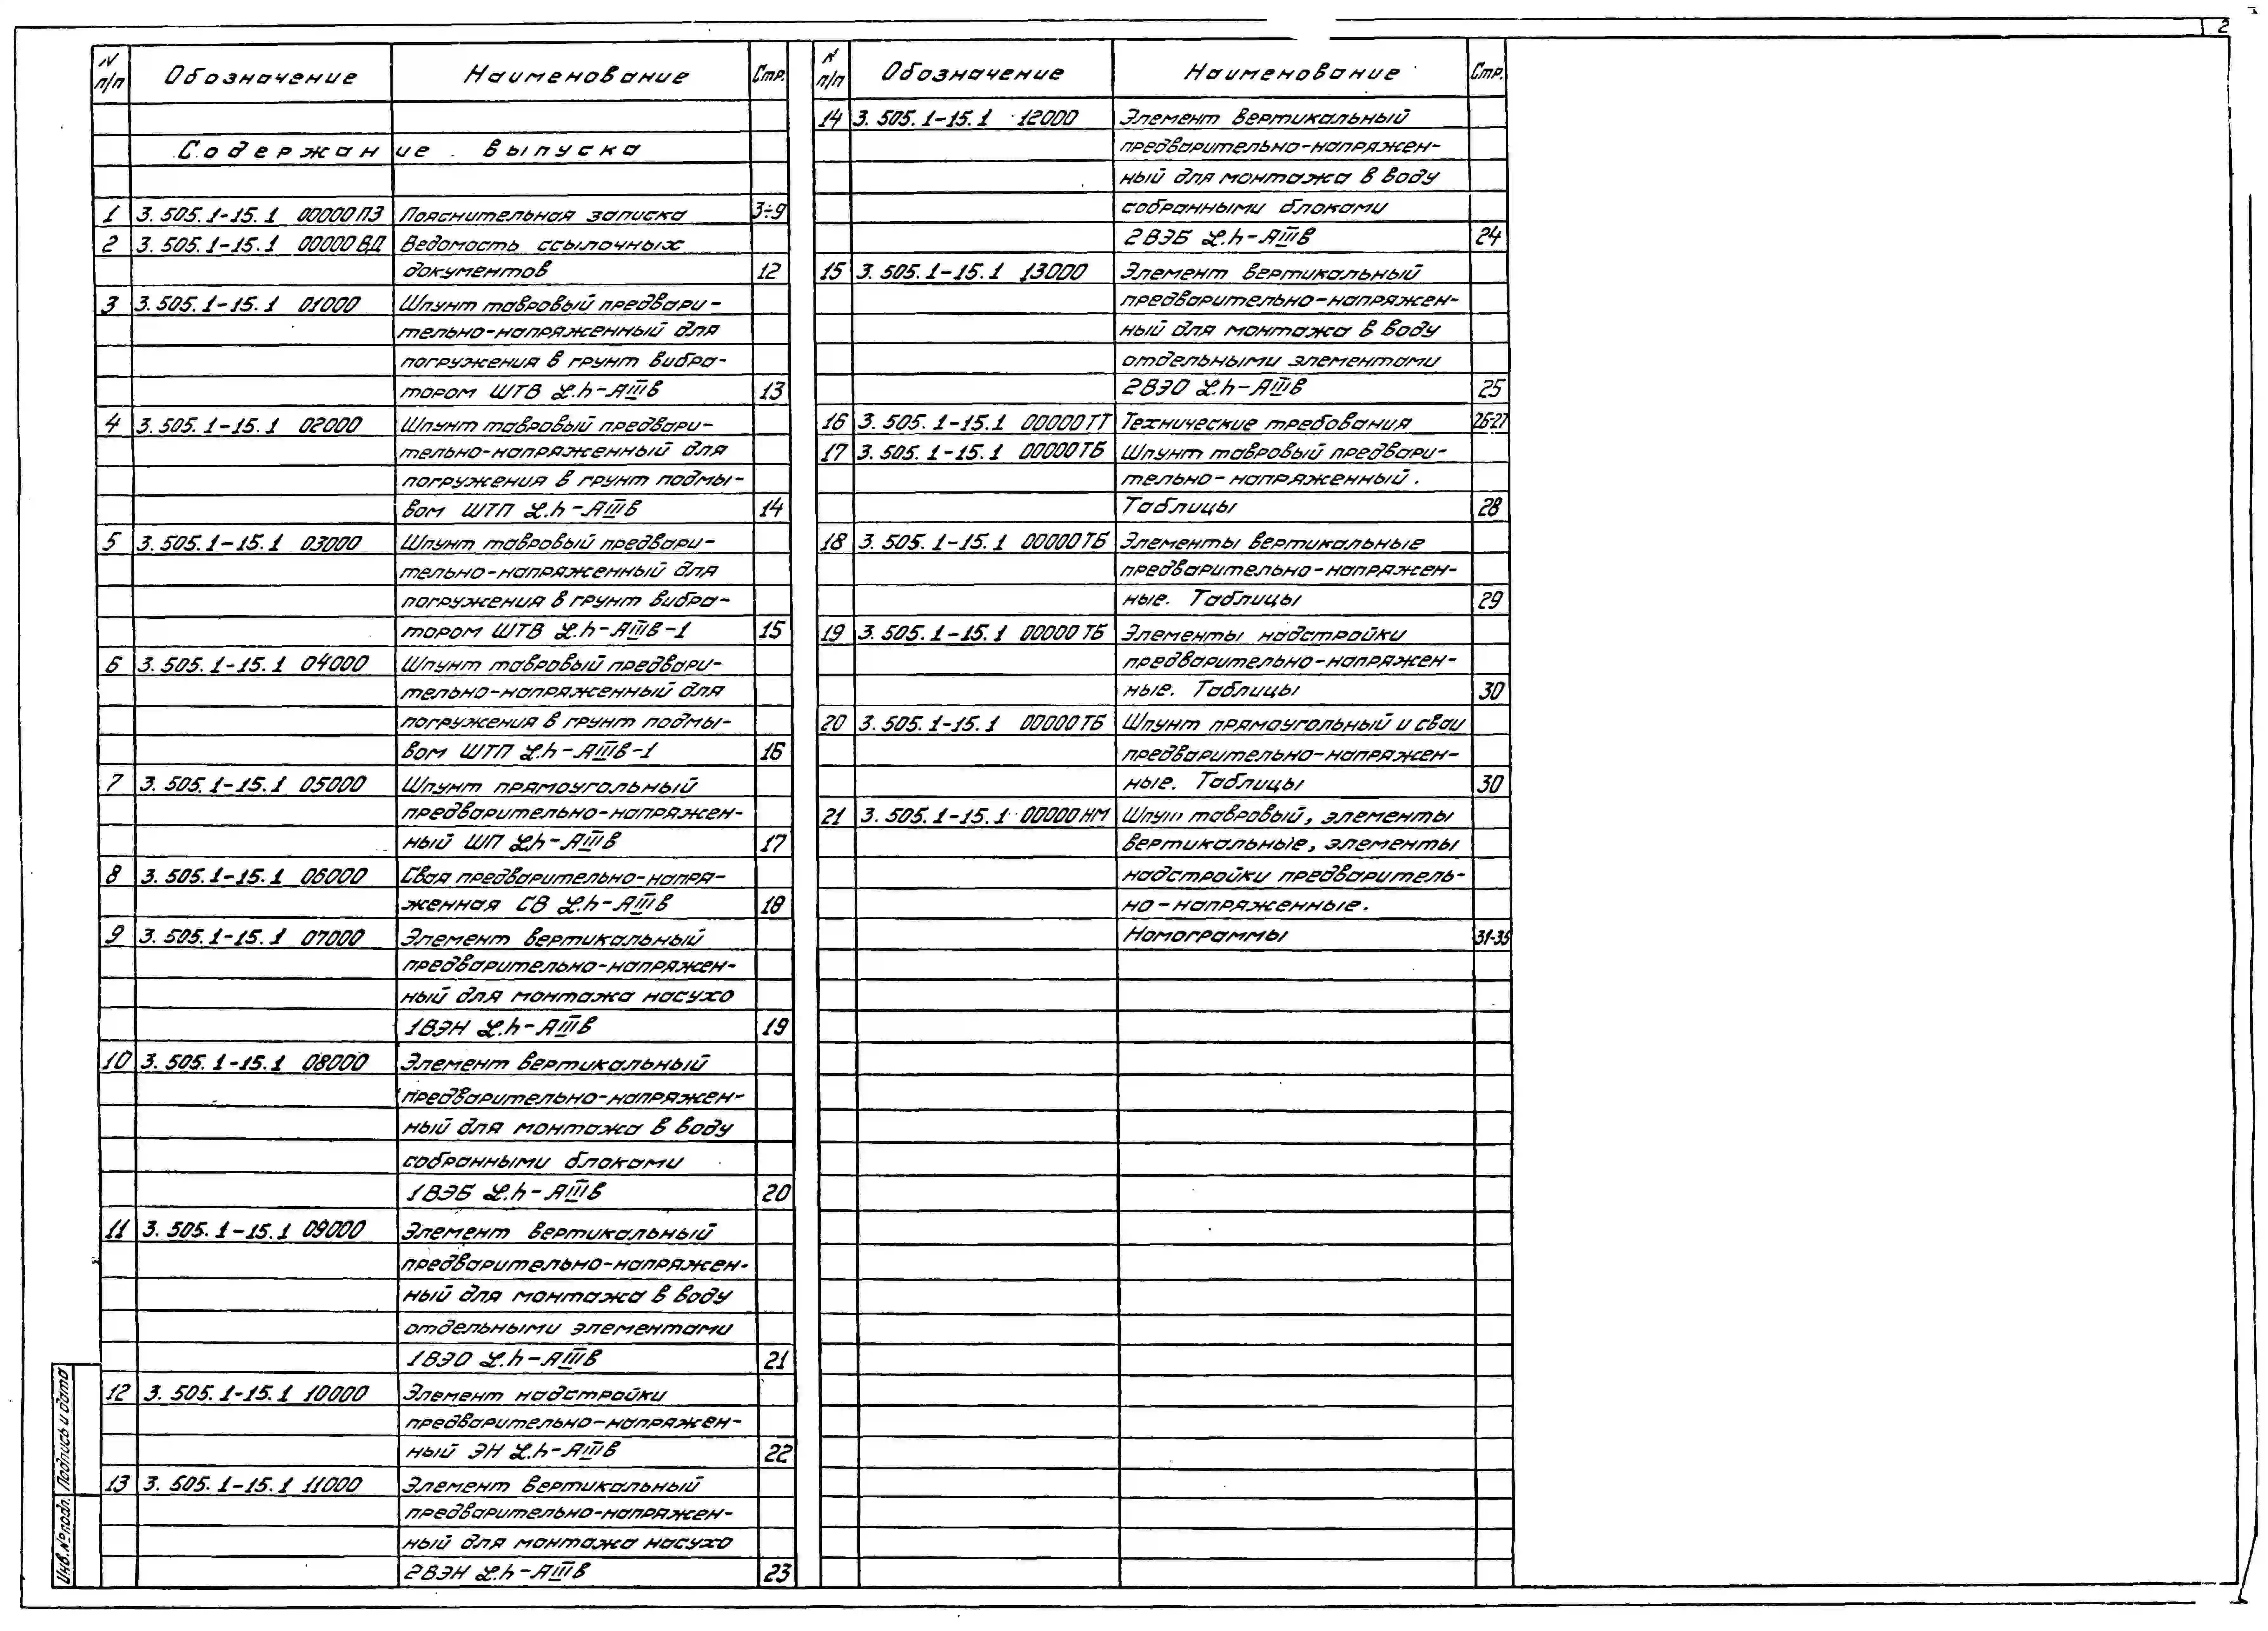 2
N п/п Обозначение Наименование Стр.
Содержание выпуска
1 3.505.1-15.1 00000ПЗ Пояснительная записка 3÷9
2 3.505.1-15.1 00000ВД Ведомость ссылочных
документов 12
3 3.505.1-15.1 01000 Шпунт тавровый предвари-
тельно-напряженный для
погружения в грунт вибра-
тором ШТВ ℒ.h-АIIIв 13
4 3.505.1-15.1 02000 Шпунт тавровый предвари-
тельно-напряженный для
погружения в грунт подмы-
вом ШТП ℒ.h-АIIIв 14
5 3.505.1-15.1 03000 Шпунт тавровый предвари-
тельно-напряженный для
погружения в грунт вибра-
тором ШТВ ℒ.h-АIIIв-1 15
6 3.505.1-15.1 04000 Шпунт тавровый предвари-
тельно-напряженный для
погружения в грунт подмы-
вом ШТП ℒ.h-АIIIв-1 16
7 3.505.1-15.1 05000 Шпунт прямоугольный
предварительно-напряжен-
ный ШП ℒ.h-АIIIв 17
8 3.505.1-15.1 06000 Свая предварительно-напря-
женная СВ ℒ.h-АIIIв 18
9 3.505.1-15.1 07000 Элемент вертикальный
предварительно-напряжен-
ный для монтажа насухо
1ВЭН ℒ.h-АIIIв 19
10 3.505.1-15.1 08000 Элемент вертикальный
предварительно-напряжен-
ный для монтажа в воду
собранными блоками
1ВЭБ ℒ.h-АIIIв 20
11 3.505.1-15.1 09000 Элемент вертикальный
предварительно-напряжен-
ный для монтажа в воду
отдельными элементами
1ВЭО ℒ.h-АIIIв 21
12 3.505.1-15.1 10000 Элемент надстройки
предварительно-напряжен-
ный ЭН ℒ.h-АIIIв 22
13 3.505.1-15.1 11000 Элемент вертикальный
предварительно-напряжен-
ный для монтажа насухо
2ВЭН ℒ.h-АIIIв 23
N п/п Обозначение Наименование Стр.
14 3.505.1-15.1 12000 Элемент вертикальный
предварительно-напряжен-
ный для монтажа в воду
собранными блоками
2ВЭБ ℒ.h-АIIIв 24
15 3.505.1-15.1 13000 Элемент вертикальный
предварительно-напряжен-
ный для монтажа в воду
отдельными элементами
2ВЭО ℒ.h-АIIIв 25
16 3.505.1-15.1 00000ТТ Технические требования 26-27
17 3.505.1-15.1 00000ТБ Шпунт тавровый предвари-
тельно-напряженный.
Таблицы 28
18 3.505.1-15.1 00000ТБ Элементы вертикальные
предварительно-напряжен-
ные. Таблицы 29
19 3.505.1-15.1 00000ТБ Элементы надстройки
предварительно-напряжен-
ные. Таблицы 30
20 3.505.1-15.1 00000ТБ Шпунт прямоугольный и сваи
предварительно-напряжен-
ные. Таблицы 30
21 3.505.1-15.1 00000НМ Шпунт тавровый, элементы
вертикальные, элементы
надстройки предваритель-
но-напряженные.
Номограммы 31-35
Инв.№подл. Подпись и дата